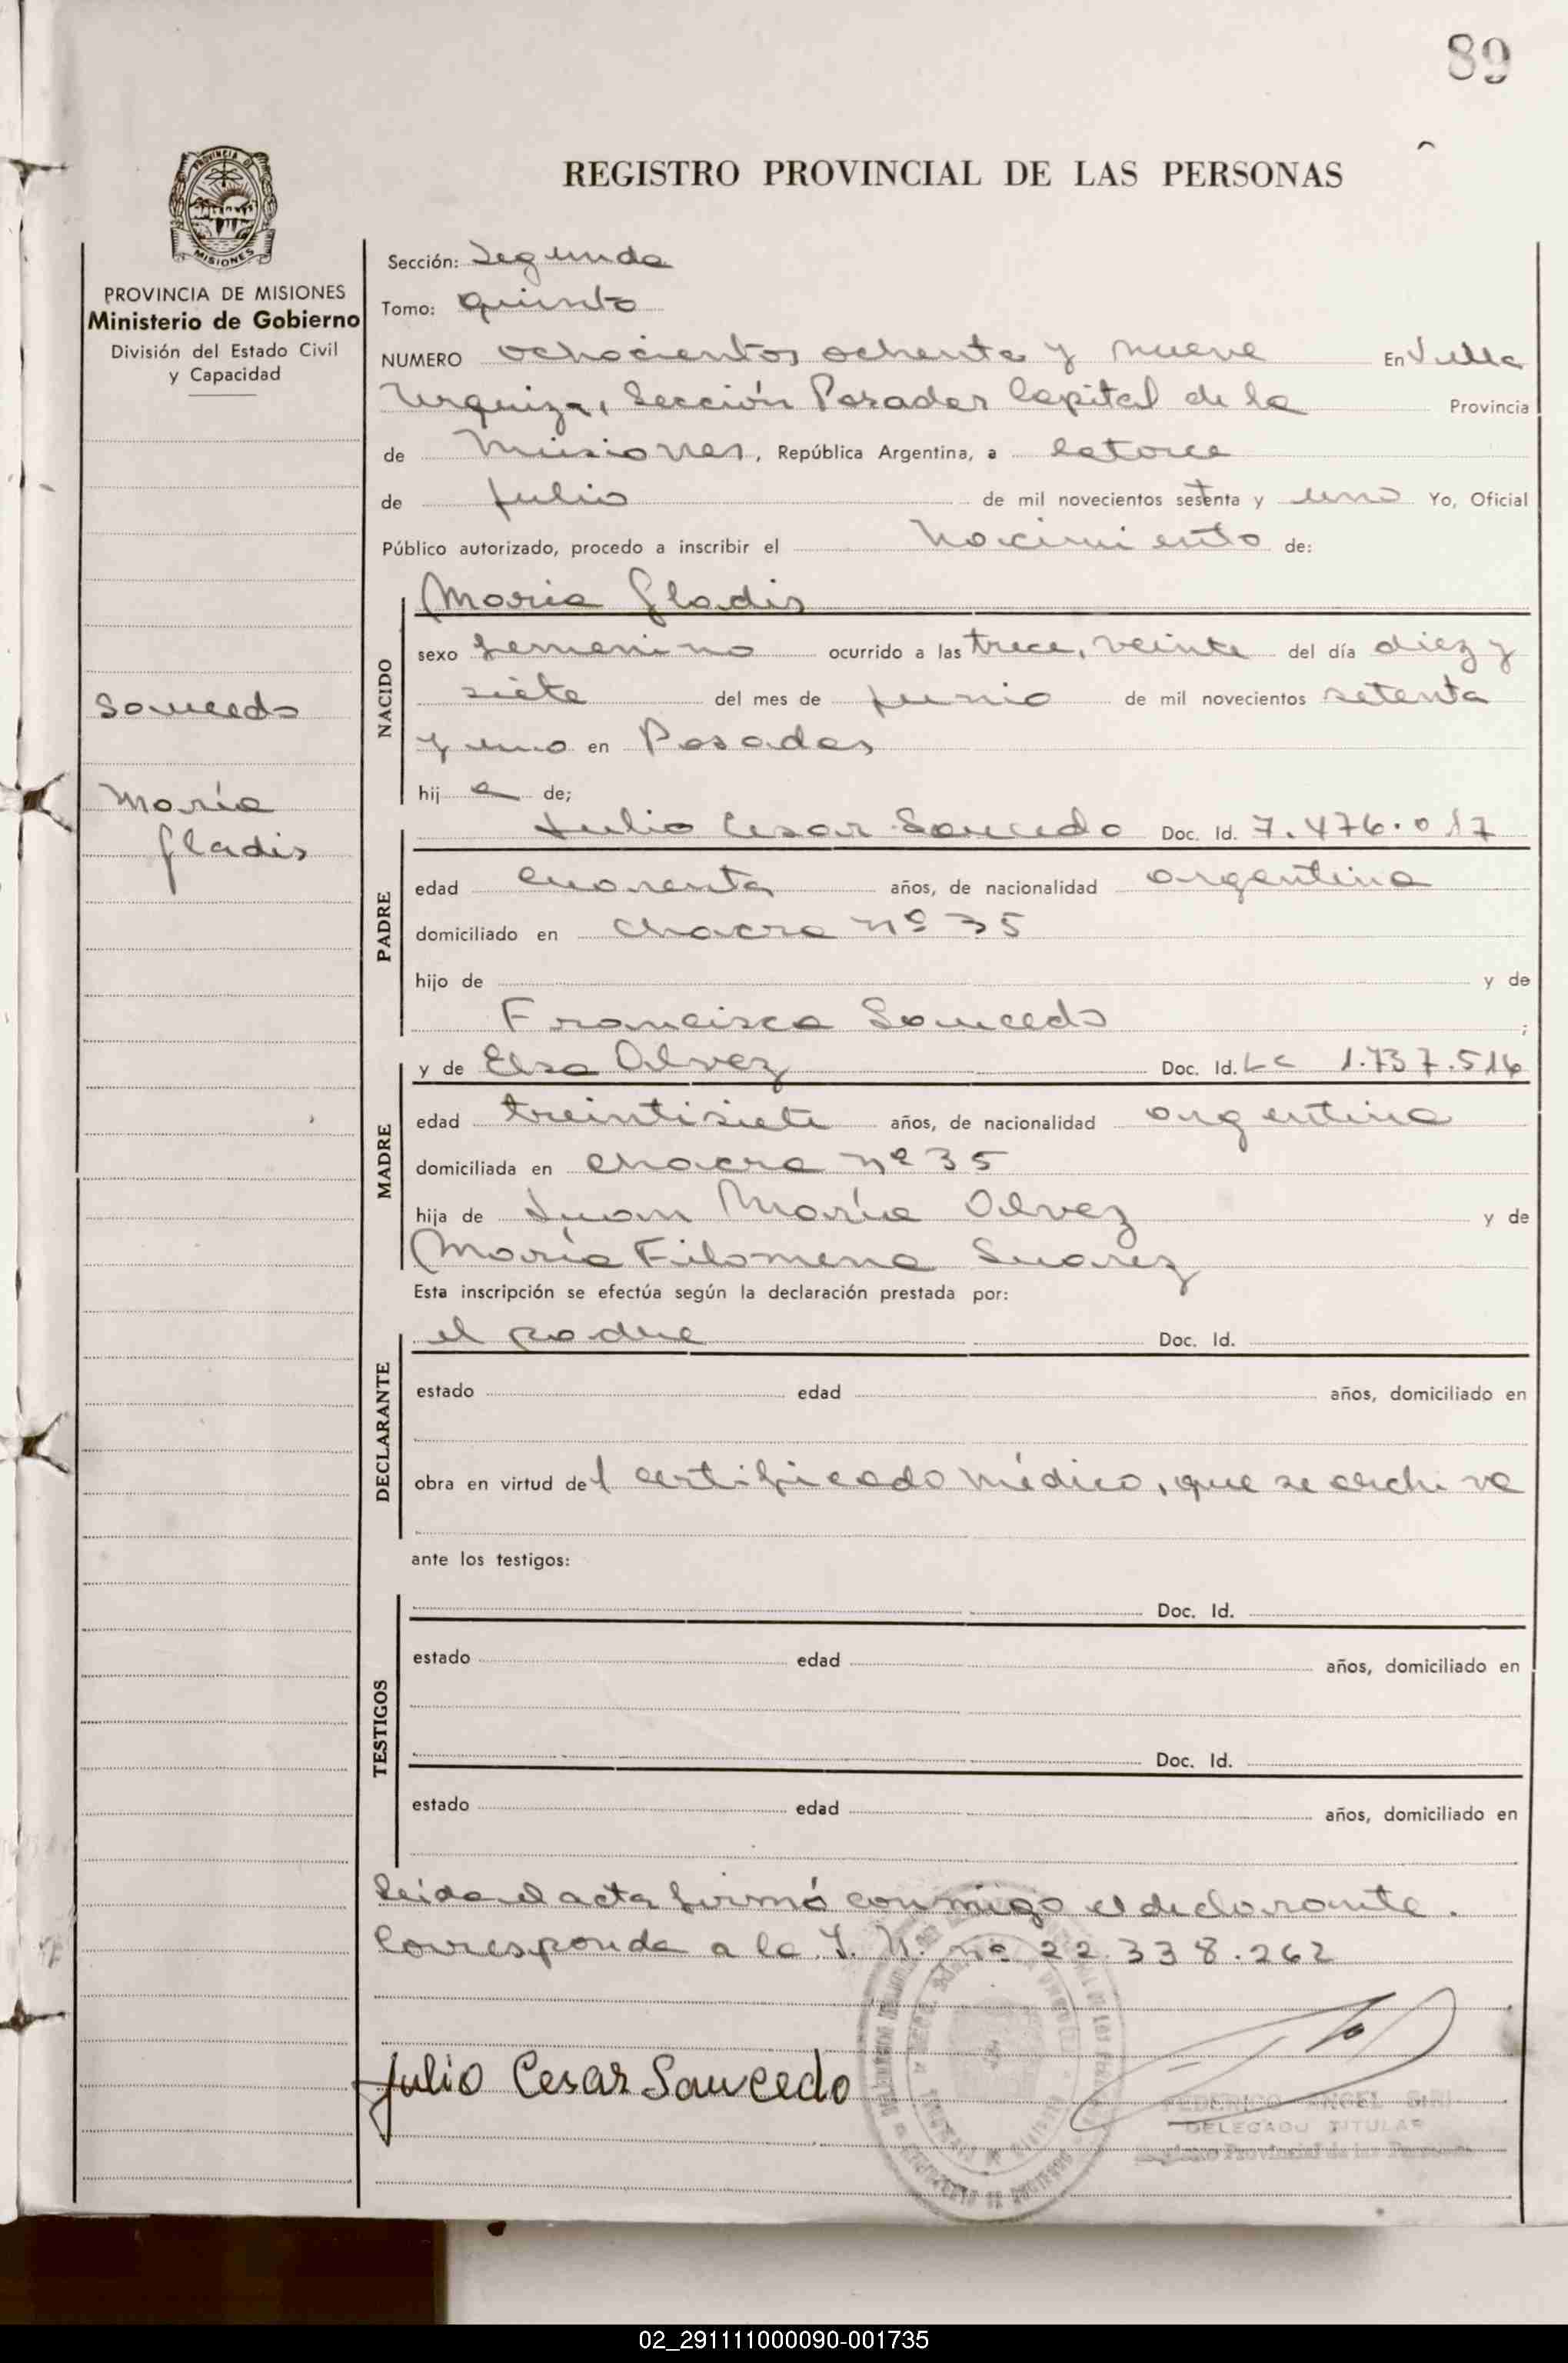 89
REGISTRO PROVINCIAL DE LAS PERSONAS
PROVINCIA DE
MISIONES
PROVINCIA DE MISIONES
Ministerio de Gobierno
División del Estado Civil
y Capacidad
Saucedo
María
Gladis
Sección: Segunda
Tomo: quinto
NUMERO ochocientos ochenta y nueve En Villa
Urquiza, Sección Posadas Capital de la Provincia
de Misiones, República Argentina, a catorce
de julio de mil novecientos setenta y uno Yo, Oficial
Público autorizado, procedo a inscribir el Nacimiento de:
NACIDO
María Gladis
sexo femenino ocurrido a las trece, veinte del día diez y
siete del mes de junio de mil novecientos setenta
y uno en Posadas
hij a de;
PADRE
Julio Cesar Saucedo Doc. Id. 7.476.017
edad cuarenta años, de nacionalidad argentina
domiciliado en chacra nº 35
hijo de y de
Francisca Saucedo ;
MADRE
y de Elsa Alvez Doc. Id. LC 1.737.516
edad treintisiete años, de nacionalidad argentina
domiciliada en chacra nº 35
hija de Juan María Alvez y de
María Filomena Suarez
Esta inscripción se efectúa según la declaración prestada por:
DECLARANTE
el padre Doc. Id.
estado edad años, domiciliado en
obra en virtud del certificado médico, que se archiva
ante los testigos:
TESTIGOS
Doc. Id.
estado edad años, domiciliado en
Doc. Id.
estado edad años, domiciliado en
Leída el acta firmó conmigo el declarante.
Corresponde a la I. N. nº 22.338.262
Julio Cesar Saucedo
FEDERICO ANGEL
DELEGADO TITULAR
Registro Provincial de las Personas
02_291111000090-001735